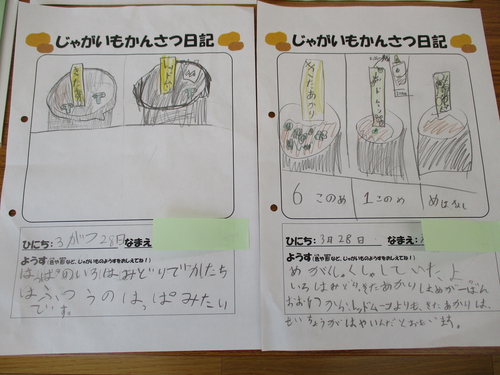 じゃがいもかんさつ日記
レッドムーン
ひにち：3がつ28日 なまえ：
ようす(色や形など、じゃがいものようすをおしえてね！)
はっぱのいろはみどりでかたち
はふつうのはっぱみたい
です。
じゃがいもかんさつ日記
きたあかり
6このめ
1このめ
めはなし
ひにち：3月28日 なまえ：
ようす(色や形など、じゃがいものようすをおしえてね！)
めがくしゃくしゃしていたよ
いろはみどり。きたあかりはめがーばん
おおいから、レッドムーンよりも、きたあかりは、
せいちょうがはやいんだとおもいます。